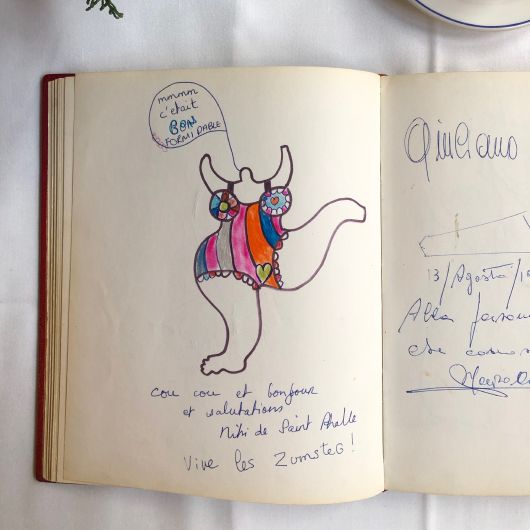 mmmm
c'était
BON
FORMIDABLE
cou cou et bonjour
et salutations
Niki de Saint Phalle
Vive les Zumsteg!
Giuliano
13/Agosto/19
Alla